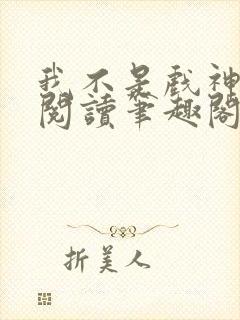 我不是戲神
閱讀筆趣閣
折美人